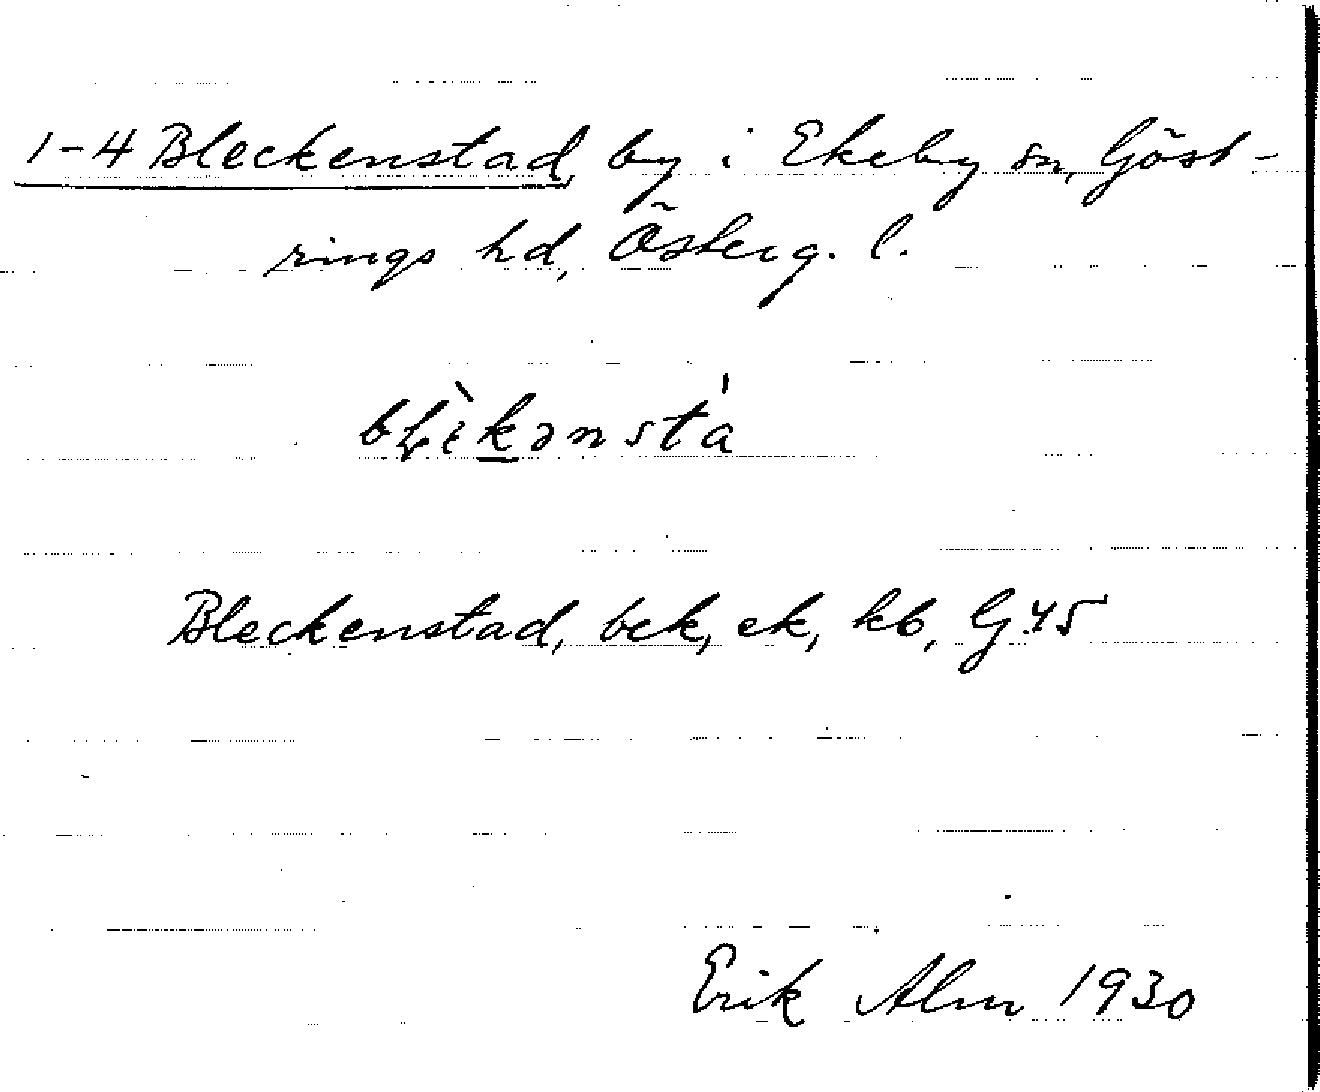 1-4 Bleckenstad, by i Ekeby sn, Göst-
rings hd, Österg. l.
bḷὲkənstá
Bleckenstad, bck, ek, kb, G 45
Erik Alm 1930